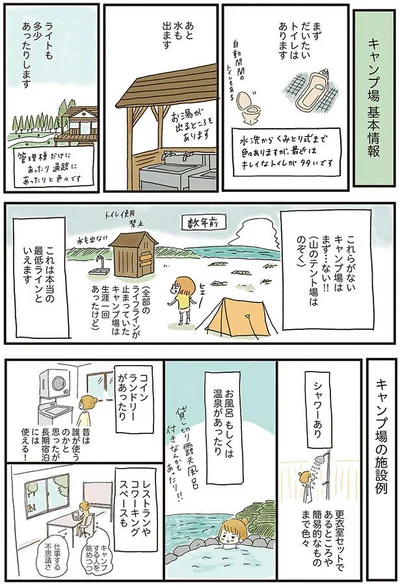 キャンプ場 基本情報
まず
だいたい
トイレは
あります
自動開閉の
トイレもある
水洗からくみとり式まで
色々ありますが、最近は
キレイなトイレが多いです
あと
水も
出ます
お湯が
出るところも
あります
ライトも
多少
あったりします
管理棟だけに
あったり通路に
あったりと色々です
これらがない
キャンプ場は
まず…ない!!
(山のテント場は
のぞく)
数年前
トイレ使用
禁止
水も出ない
ヒュー
(全部の
ライフラインが
止まっていた
キャンプ場は
生涯一回
あったけど)
これは本当の
最低ラインと
いえます
キャンプ場の施設例
シャワーあり
更衣室セットで
あるところや
簡易的なもの
まで色々
お風呂もしくは
温泉があったり
貸し切り露天風呂
付きなんかもあったり!!
コイン
ランドリー
があったり
昔は
誰が使う
のかと
思ったが
長期宿泊
には
使える!
レストランや
コワーキング
スペースも
キャンプ
する人を
眺めつつ
仕事する
不思議さ